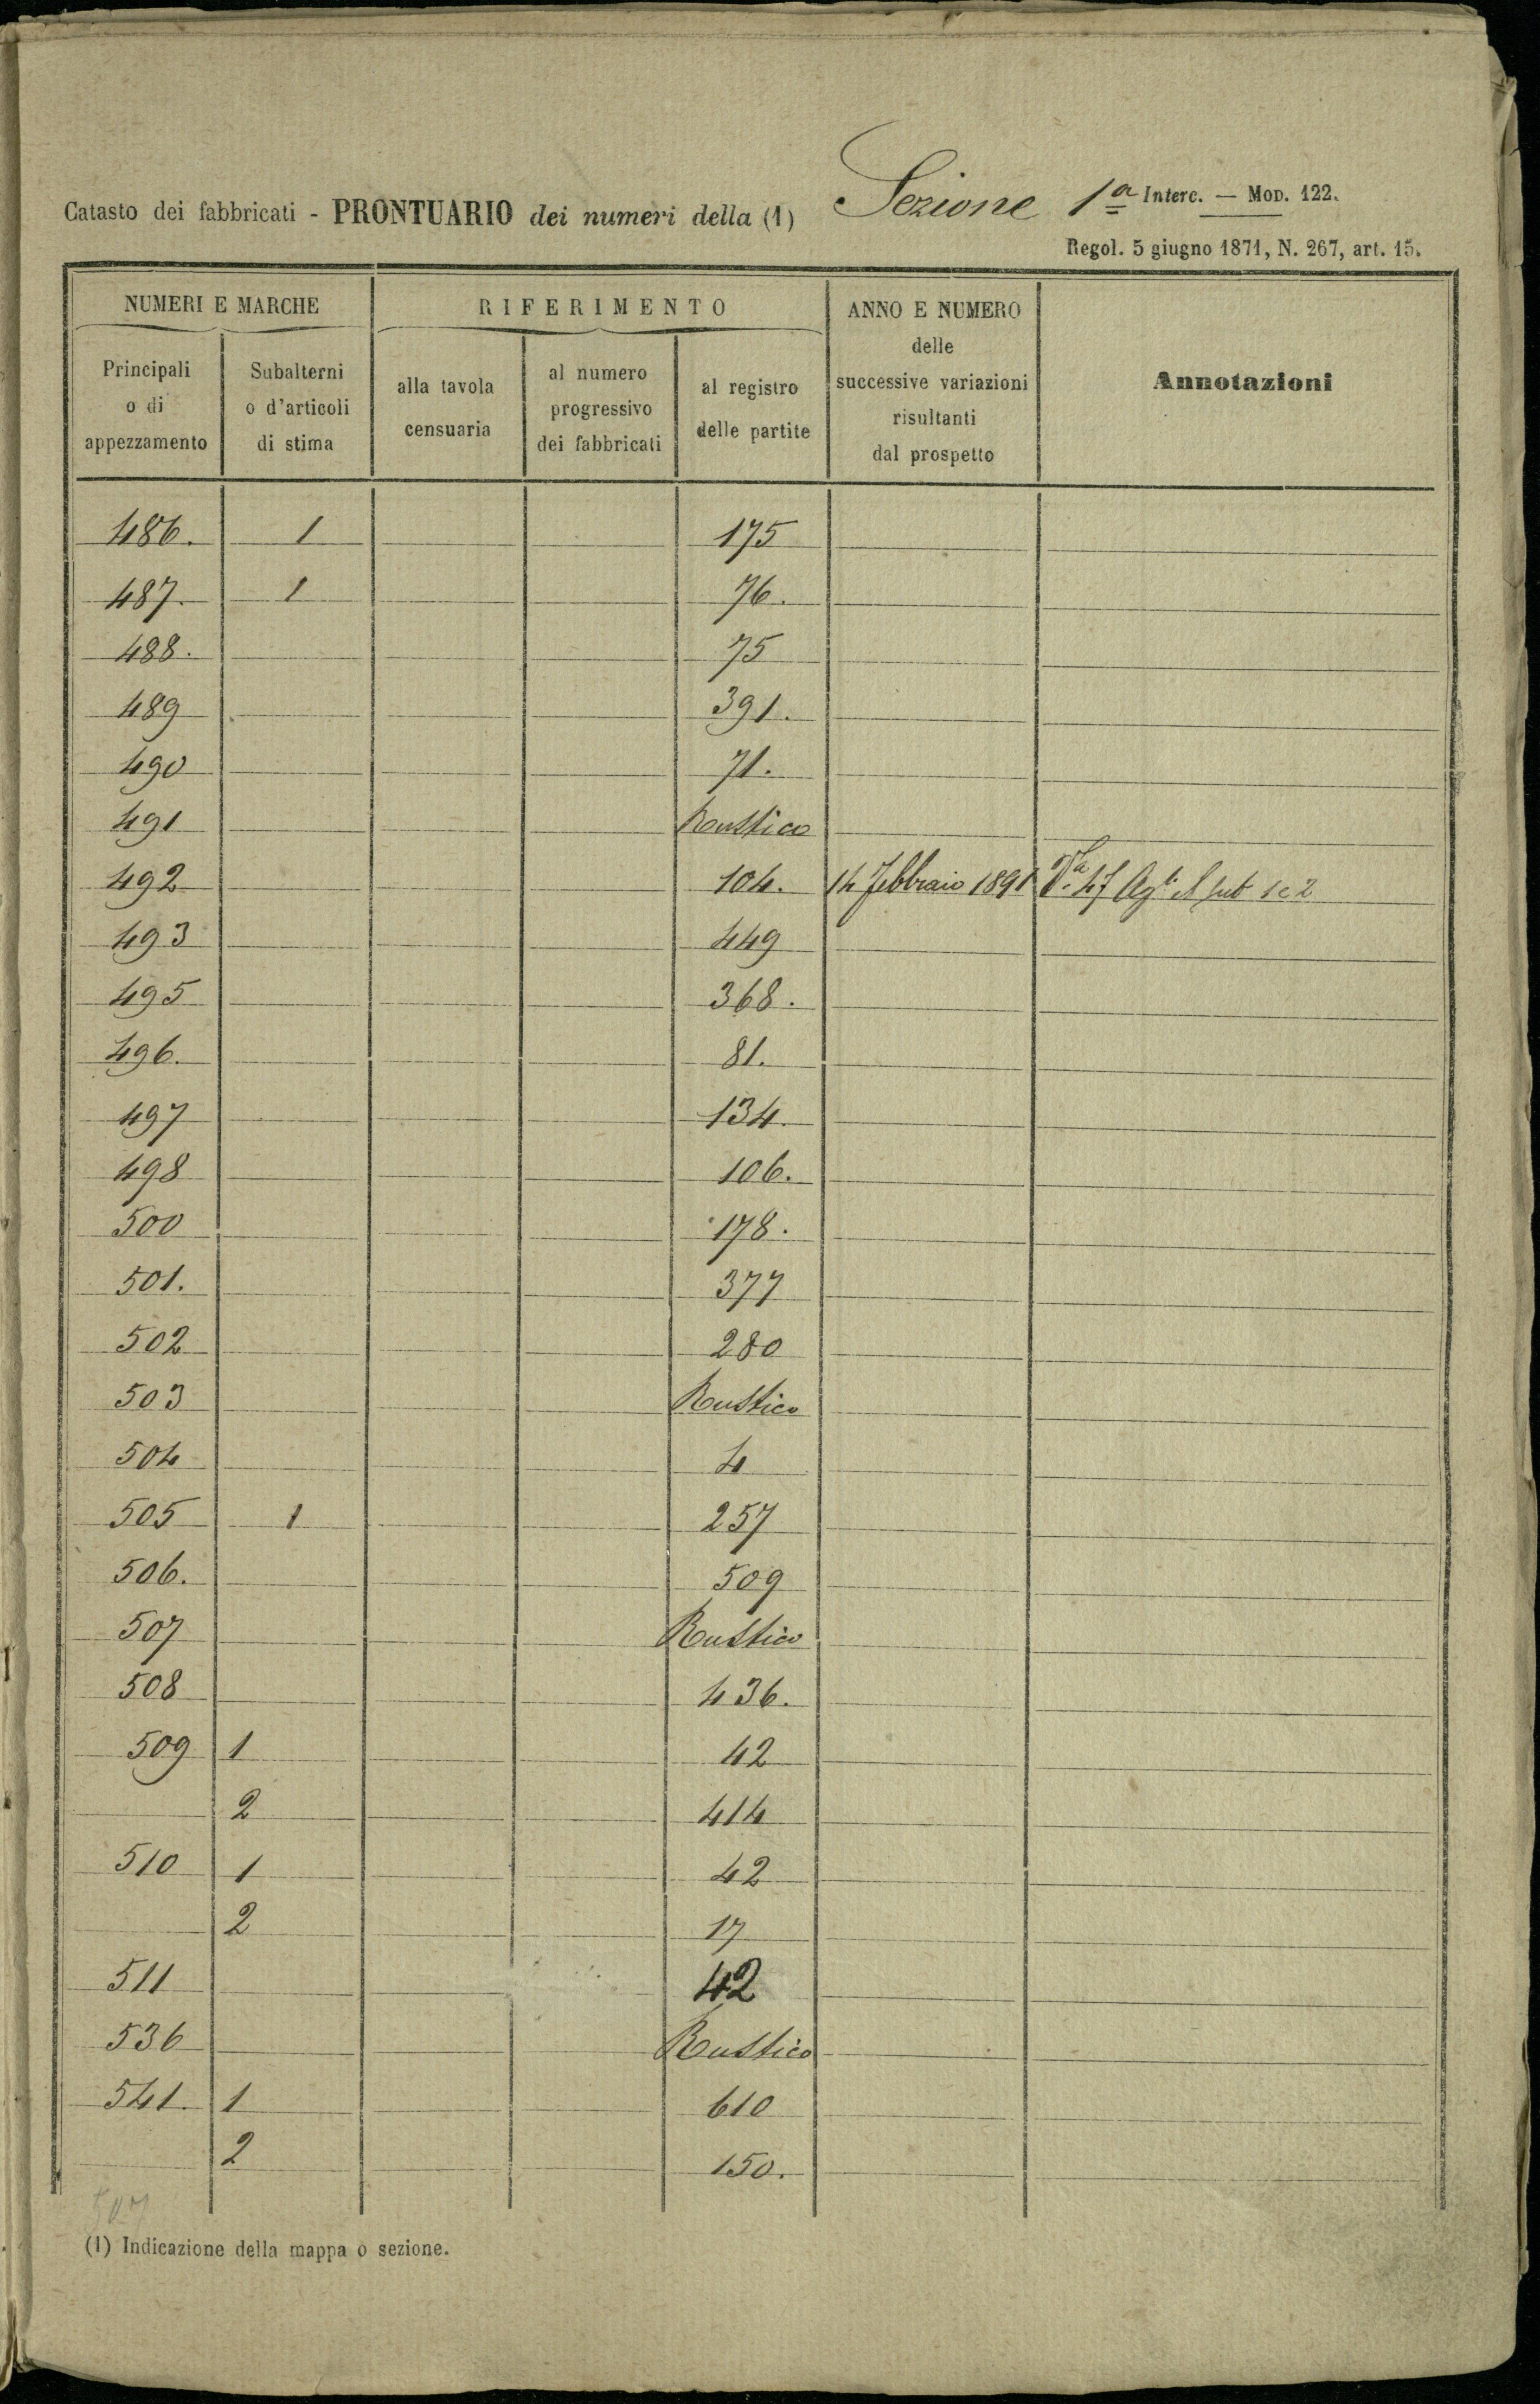 Sezione 1ª Interc. — MOD. 122.
Catasto dei fabbricati - PRONTUARIO dei numeri della (1)
Regol. 5 giugno 1871, N. 267, art. 15.
NUMERI E MARCHE
RIFERIMENTO
ANNO E NUMERO
delle
successive variazioni
risultanti
dal prospetto
Annotazioni
Principali
o di
appezzamento
Subalterni
o d'articoli
di stima
alla tavola
censuaria
al numero
progressivo
dei fabbricati
al registro
delle partite
486. 1 175
487. 1 76.
488. 75
489 391.
490 71.
491 Rustico
492 104. 14 Febbraio 1891 sub 1 e 2
493 449
495 368.
496. 81.
497 134.
498 106.
500 178.
501. 377
502 280
503 Rustico
504 4
505 1 257
506. 509
507 Rustico
508 436.
509 1 42
2 414
510 1 42
2 17
511 42
536 Rustico
541. 1 610
2 150.
507
(1) Indicazione della mappa o sezione.